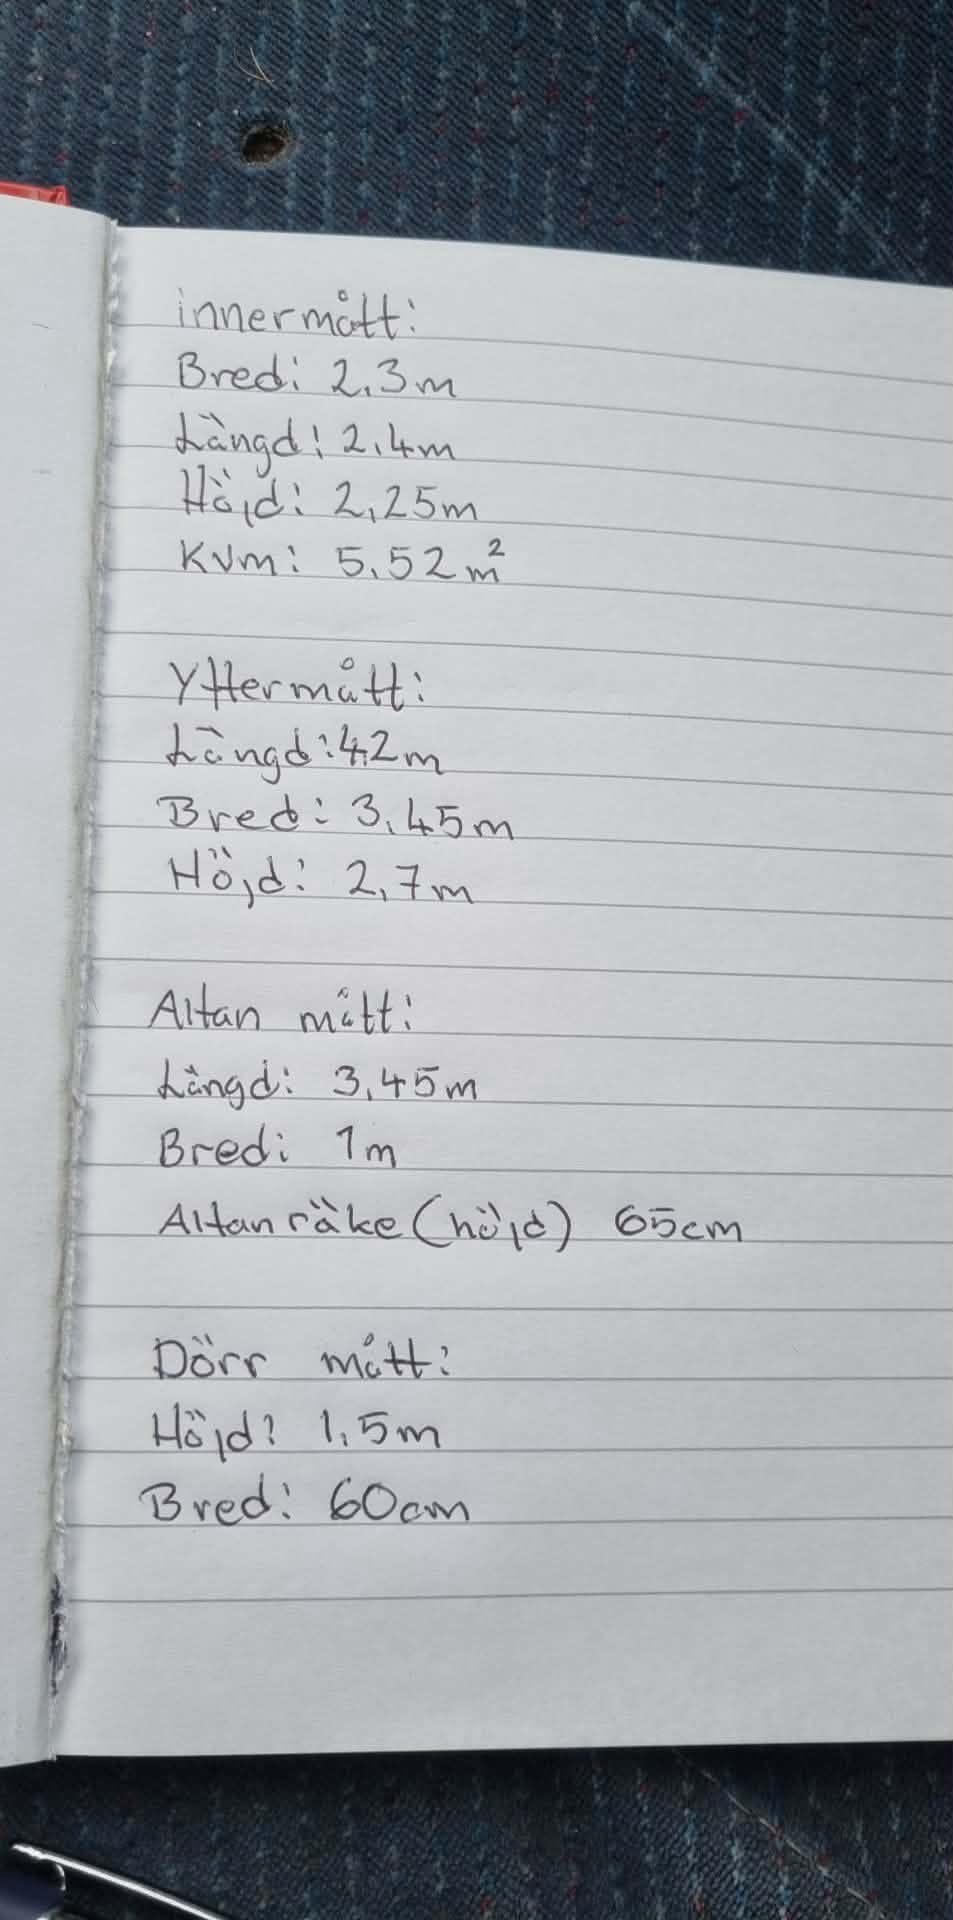 innermått:
Bred: 2,3m
Längd: 2,4m
Höjd: 2,25m
Kvm: 5,52 m²
Yttermått:
Längd: 4,2m
Bred: 3,45m
Höjd: 2,7m
Altan mått:
Längd: 3,45m
Bred: 1m
Altanräke (höjd) 65cm
Dörr mått:
Höjd: 1,5m
Bred: 60cm